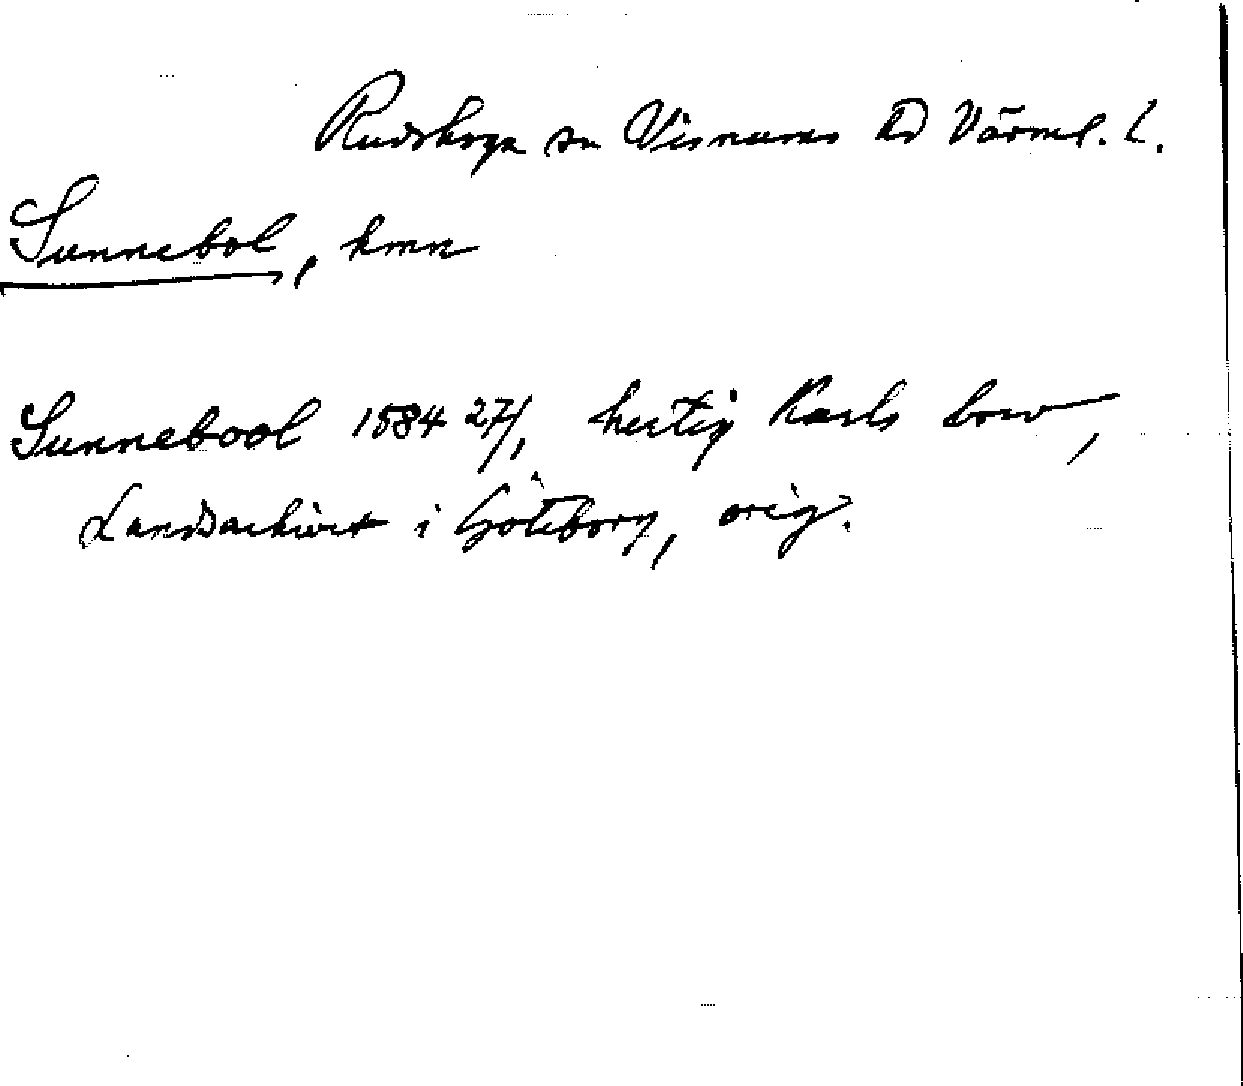 Rudskoga sn Visnums hd Värml. l.
Sunnebol, hmn
Sunnebool 1584 27/1 hertig Karls brev,
Landsarkivet i Göteborg, orig.